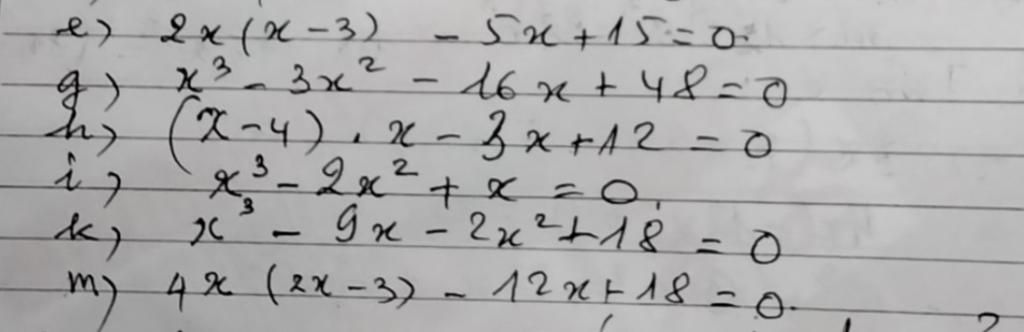 e) 2x(x-3) - 5x+15=0.
g) x³ - 3x² - 16x + 48 = 0
h) (x-4).x - 3x+12 = 0
i) x³ - 2x² + x = 0.
k) x³ - 9x - 2x²+18 = 0
m) 4x (2x-3) - 12x+18=0.